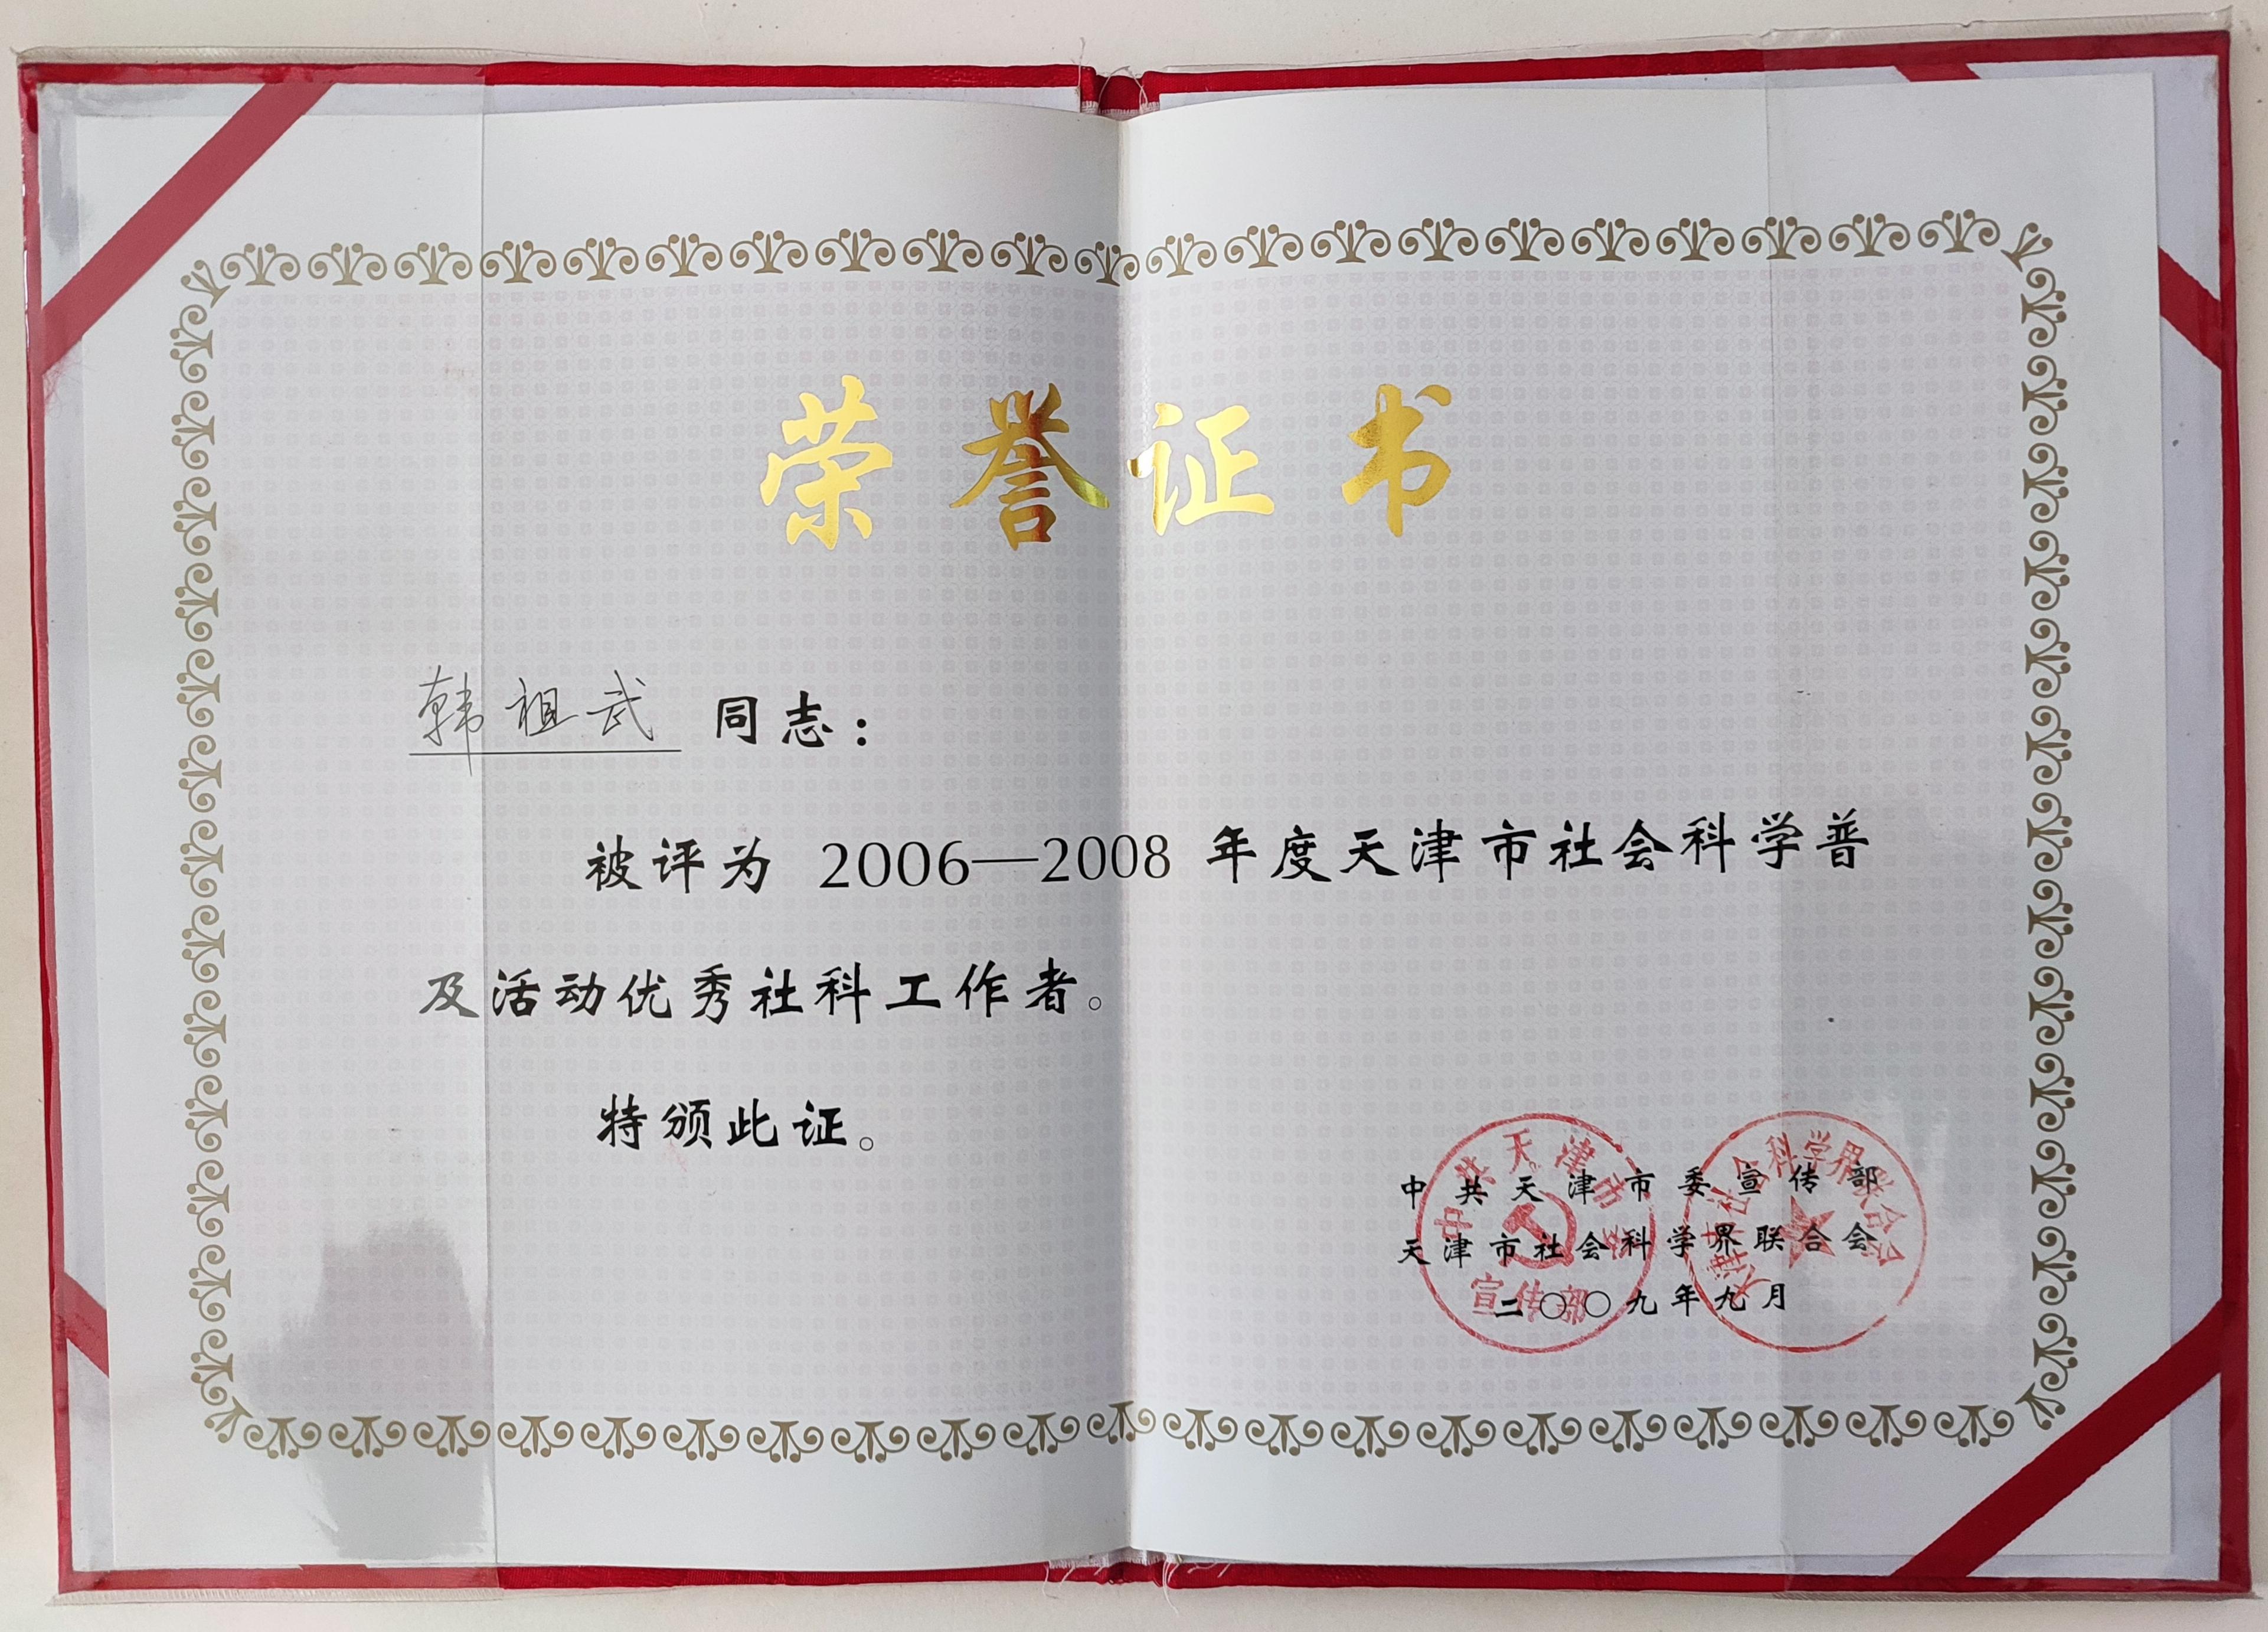 荣誉证书
韩祖武 同志：
被评为 2006—2008 年度天津市社会科学普
及活动优秀社科工作者。
特颁此证。
中共天津市委宣传部
天津市社会科学界联合会
二〇〇九年九月
中共天津市委
宣传部
天津市社会科学界联合会